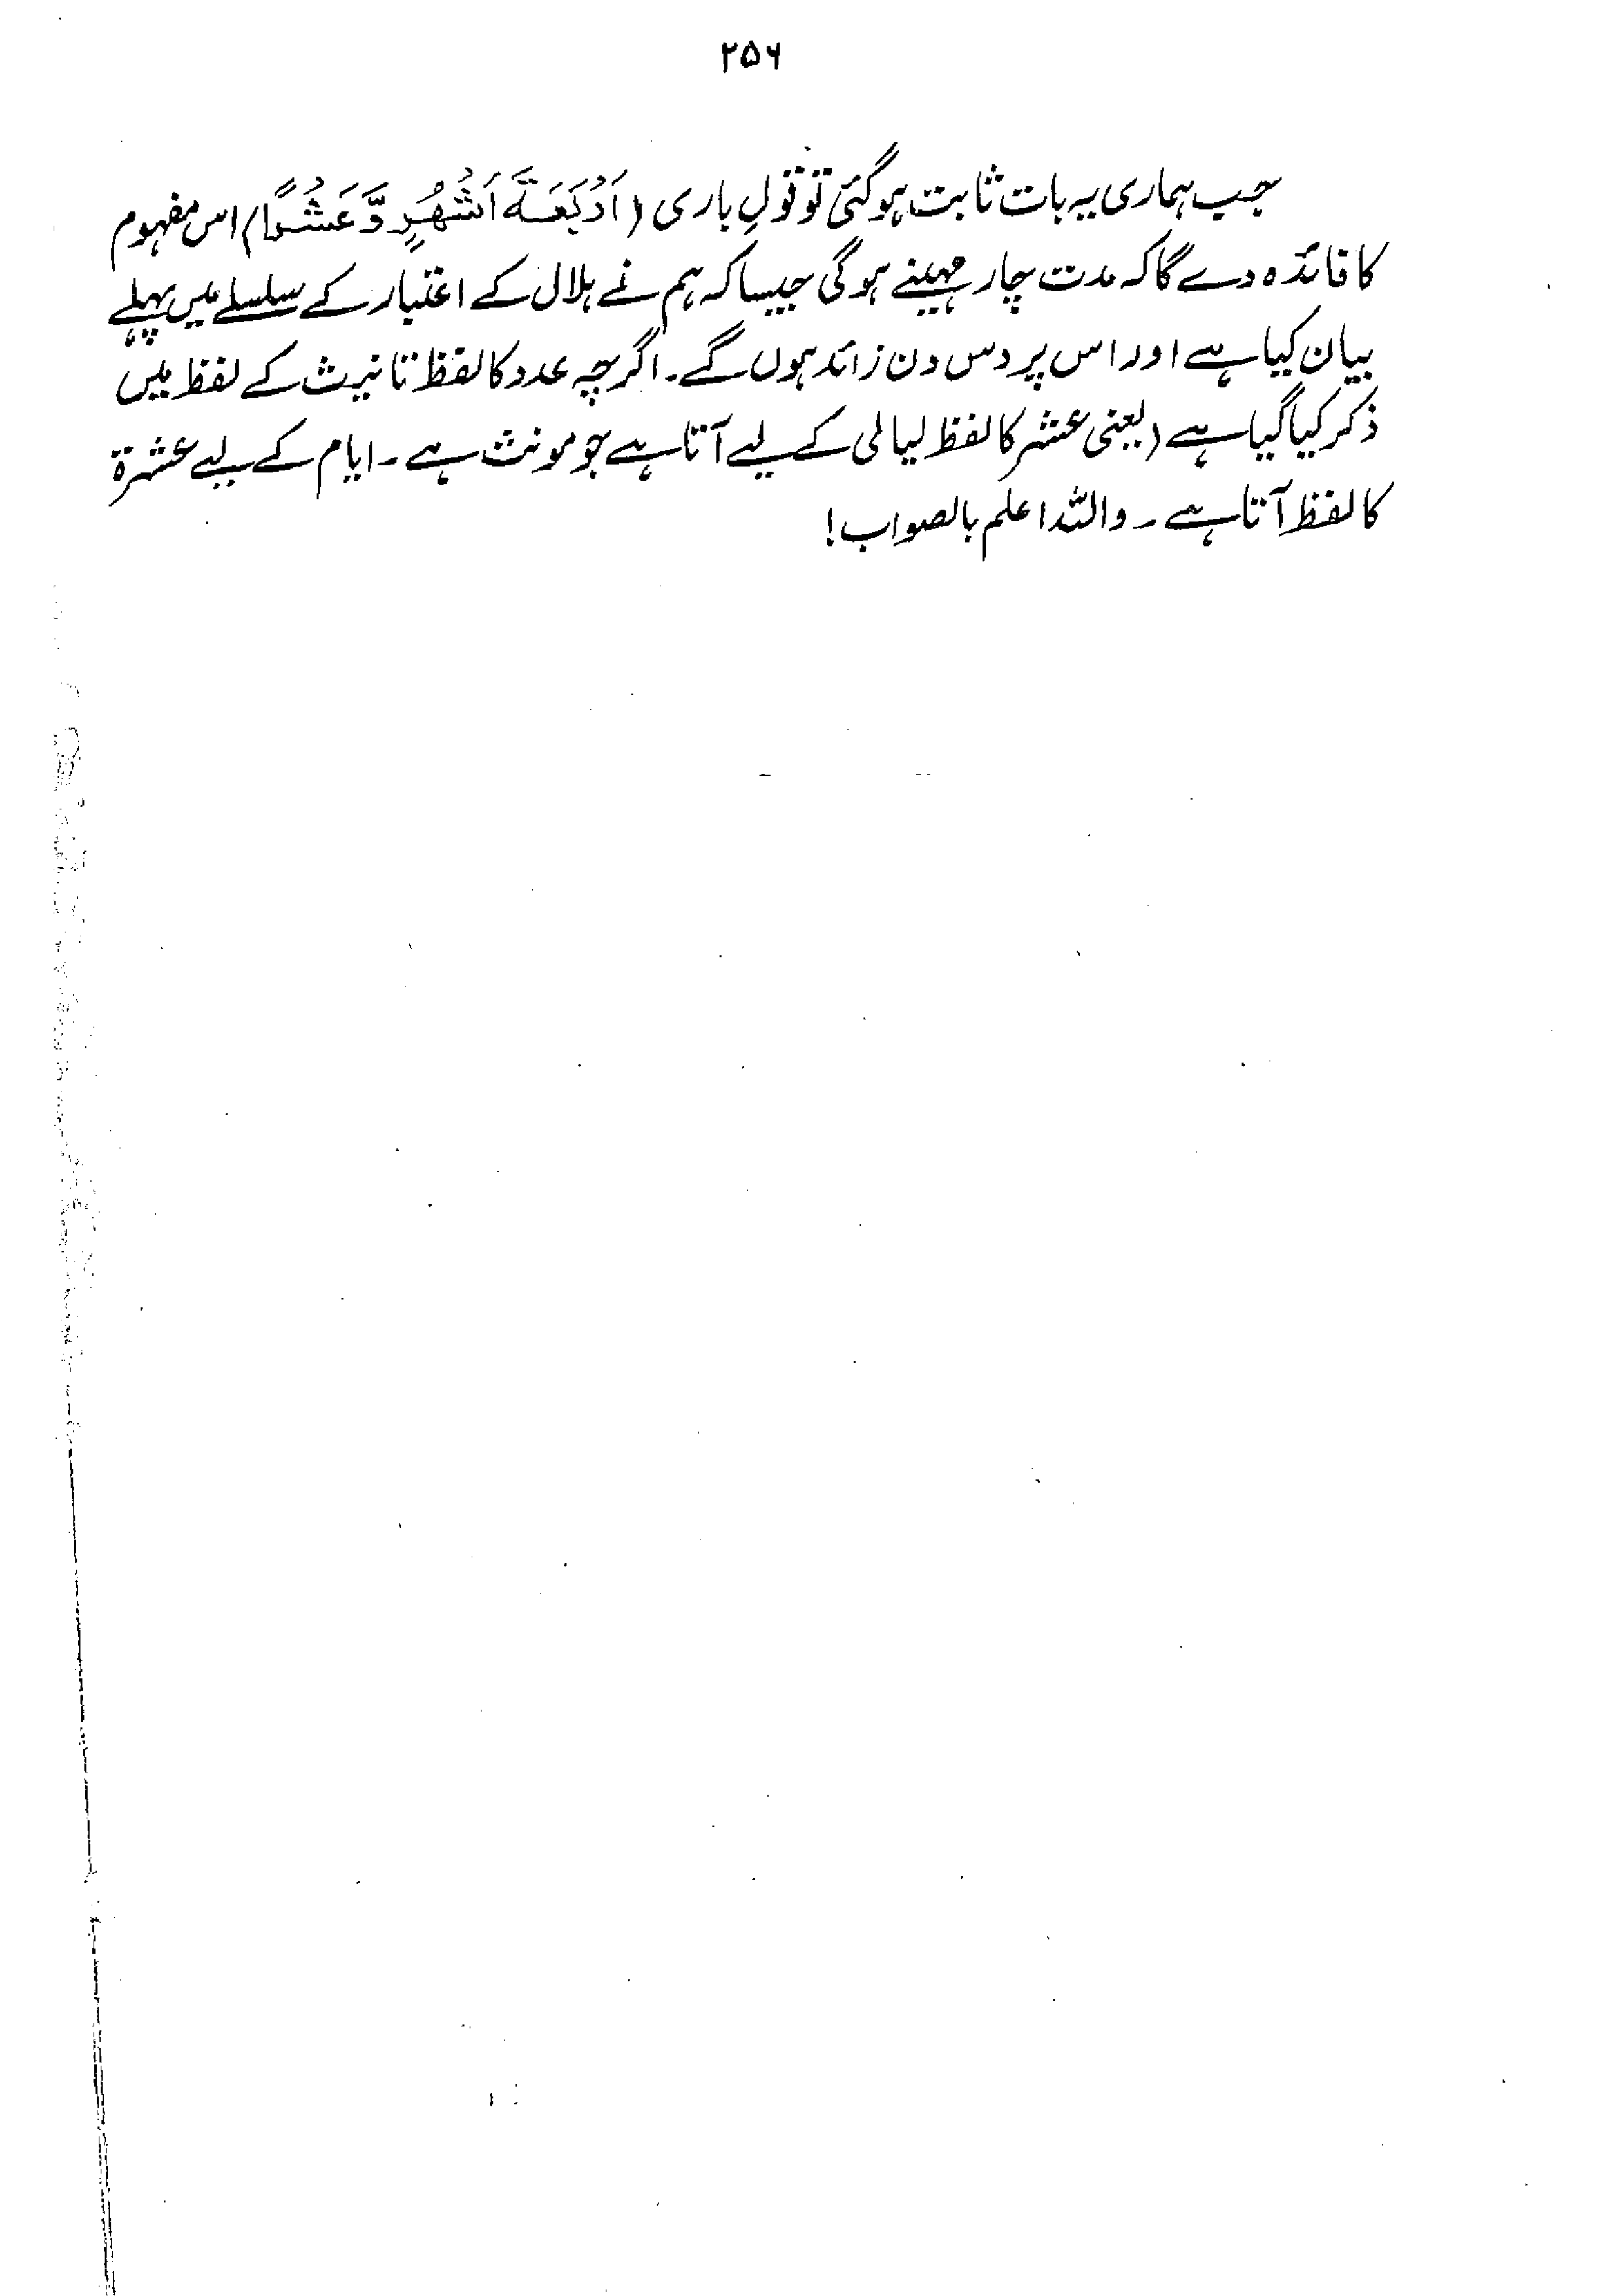 ۲۵۶
جب ہماری یہ بات ثابت ہوگئی تو قولِ باری (اَرْبَعَةَ اَشْهُرٍ وَّعَشْرًا) اس مفہوم
کا فائدہ دے گا کہ مدت چار مہینے ہوگی جیسا کہ ہم نے ہلال کے اعتبار کے سلسلے میں پہلے
بیان کیا ہے اور اس پر دس دن زائد ہوں گے۔ اگرچہ عدد کا لفظ تانیث کے لفظ میں
ذکر کیا گیا ہے (یعنی عشر کا لفظ لیالی کے لیے آتا ہے جو مونث ہے۔ ایام کے لیے عشرۃ
کا لفظ آتا ہے۔ واللہ اعلم بالصواب!